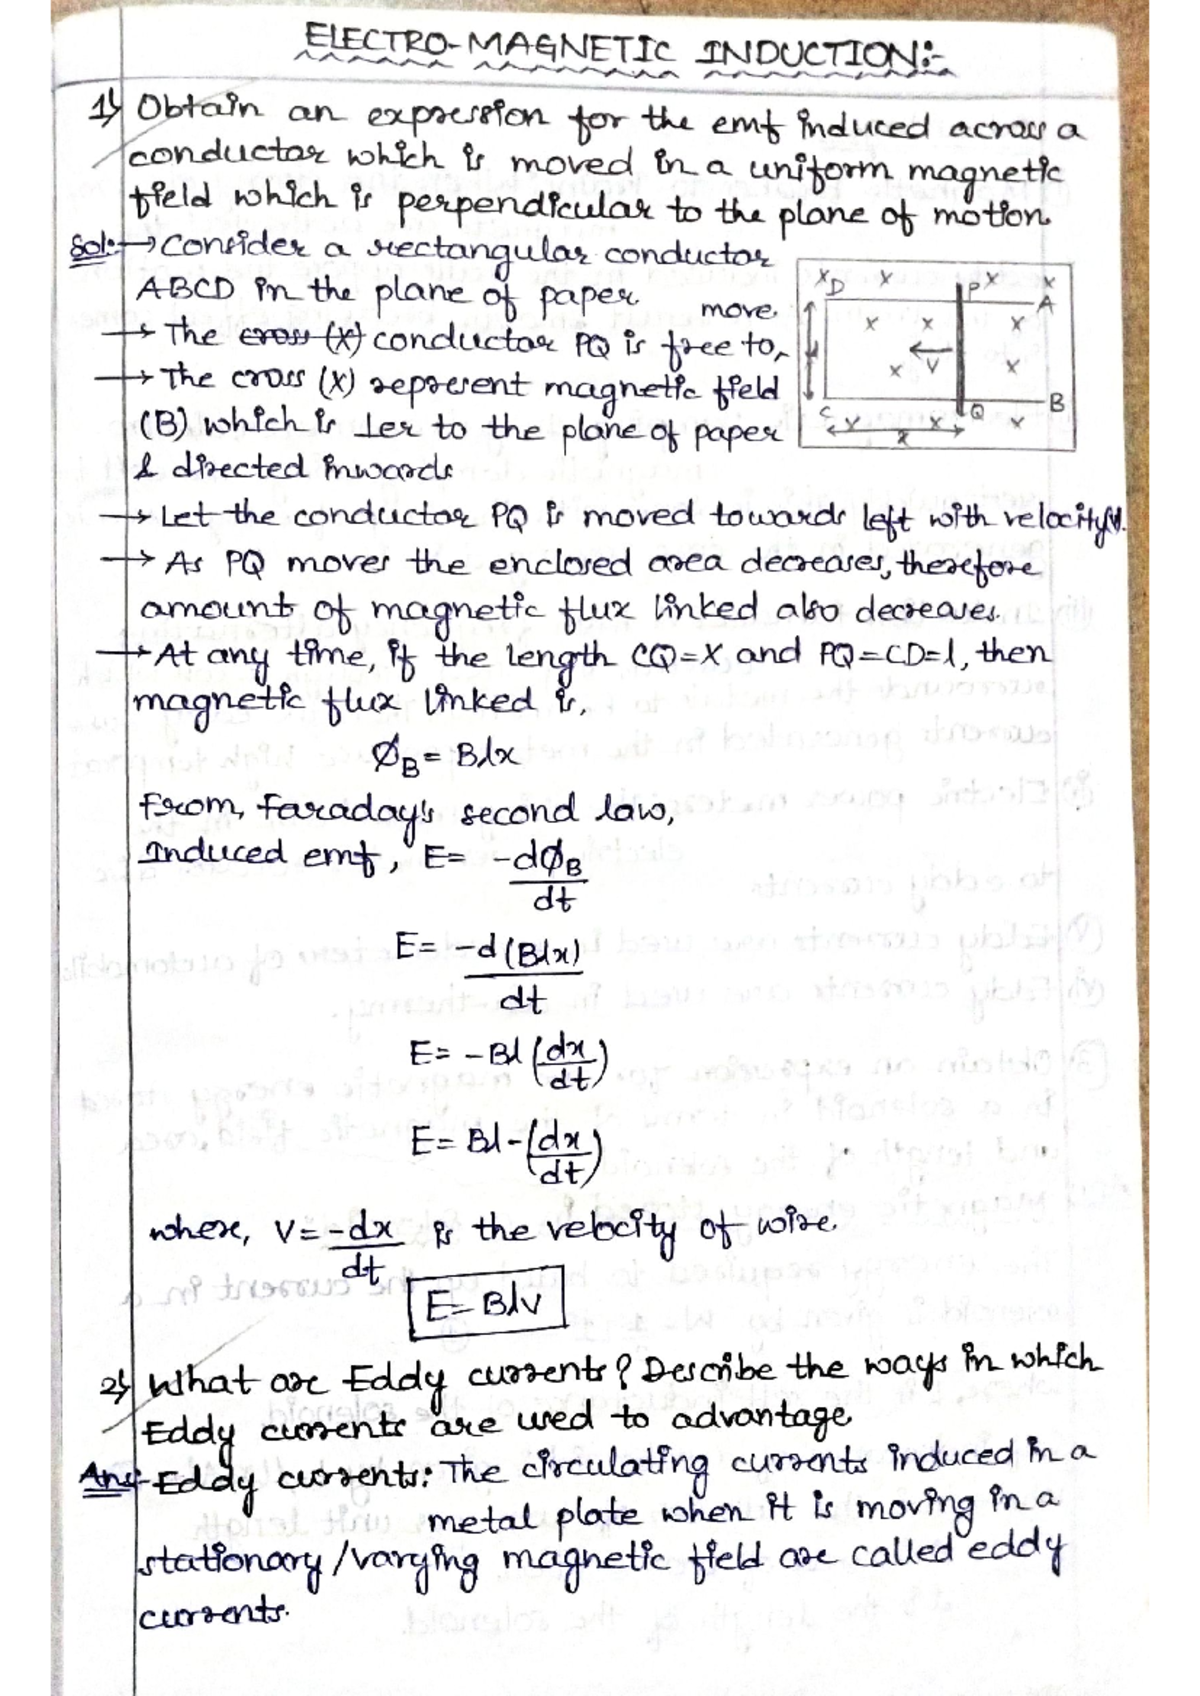 ELECTRO-MAGNETIC INDUCTION:-
1) Obtain an expression for the emf induced across a
conductor which is moved in a uniform magnetic
field which is perpendicular to the plane of motion.
Sol:- → Consider a rectangular conductor
ABCD in the plane of paper
→ The cross (x) conductor PQ is free to move.
→ The cross (x) represent magnetic field
(B) which is ⊥er to the plane of paper
& directed inwards
x D x P x x A
x x x
x v x
l
C x x Q x B
x
→ Let the conductor PQ is moved towards left with velocity V.
→ As PQ moves the enclosed area decreases, therefore
amount of magnetic flux linked also decreases.
→ At any time, if the length CQ=X and PQ=CD=l, then
magnetic flux linked is,
ØB = Blx
From, Faraday's second law,
Induced emf, E= -dØB
dt
E= -d(Blx)
dt
E= -Bl (dx/dt)
E= Bl -(dx/dt)
where, V= -dx is the velocity of wire.
dt
E= Blv
2) What are Eddy currents? Describe the ways in which
Eddy currents are used to advantage
Ans- Eddy currents: The circulating currents induced in a
metal plate when it is moving in a
stationary/varying magnetic field are called eddy
currents.